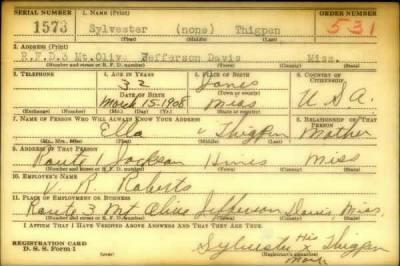 SERIAL NUMBER 1. NAME (Print) ORDER NUMBER
1573 Sylvester (none) Thigpen 531
(First) (Middle) (Last)
2. ADDRESS (Print)
R.F.D.3 Mt.Oliv. Jefferson Davis Miss.
(Number and street or R. F. D. number) (Town) (County) (State)
3. TELEPHONE 4. AGE IN YEARS 5. PLACE OF BIRTH 6. COUNTRY OF CITIZENSHIP
32 Jones
DATE OF BIRTH (Town or county)
March 15-1908 Miss U.S.A.
(Exchange) (Number) (Mo.) (Day) (Yr.) (State or country)
7. NAME OF PERSON WHO WILL ALWAYS KNOW YOUR ADDRESS 8. RELATIONSHIP OF THAT PERSON
Ella Thigpen Mother
(Mr., Mrs., Miss) (First) (Middle) (Last)
9. ADDRESS OF THAT PERSON
Route 1 Jackson Hines Miss
(Number and street or R. F. D. number) (Town) (County) (State)
10. EMPLOYER'S NAME
V. R. Roberts
11. PLACE OF EMPLOYMENT OR BUSINESS
Route 3 Mt Olive Jefferson Davis, Miss.
(Number and street or R. F. D. number) (Town) (County) (State)
I AFFIRM THAT I HAVE VERIFIED ABOVE ANSWERS AND THAT THEY ARE TRUE.
REGISTRATION CARD
D. S. S. Form 1
Sylvester His X Thigpen
(Registrant's signature)
Mark